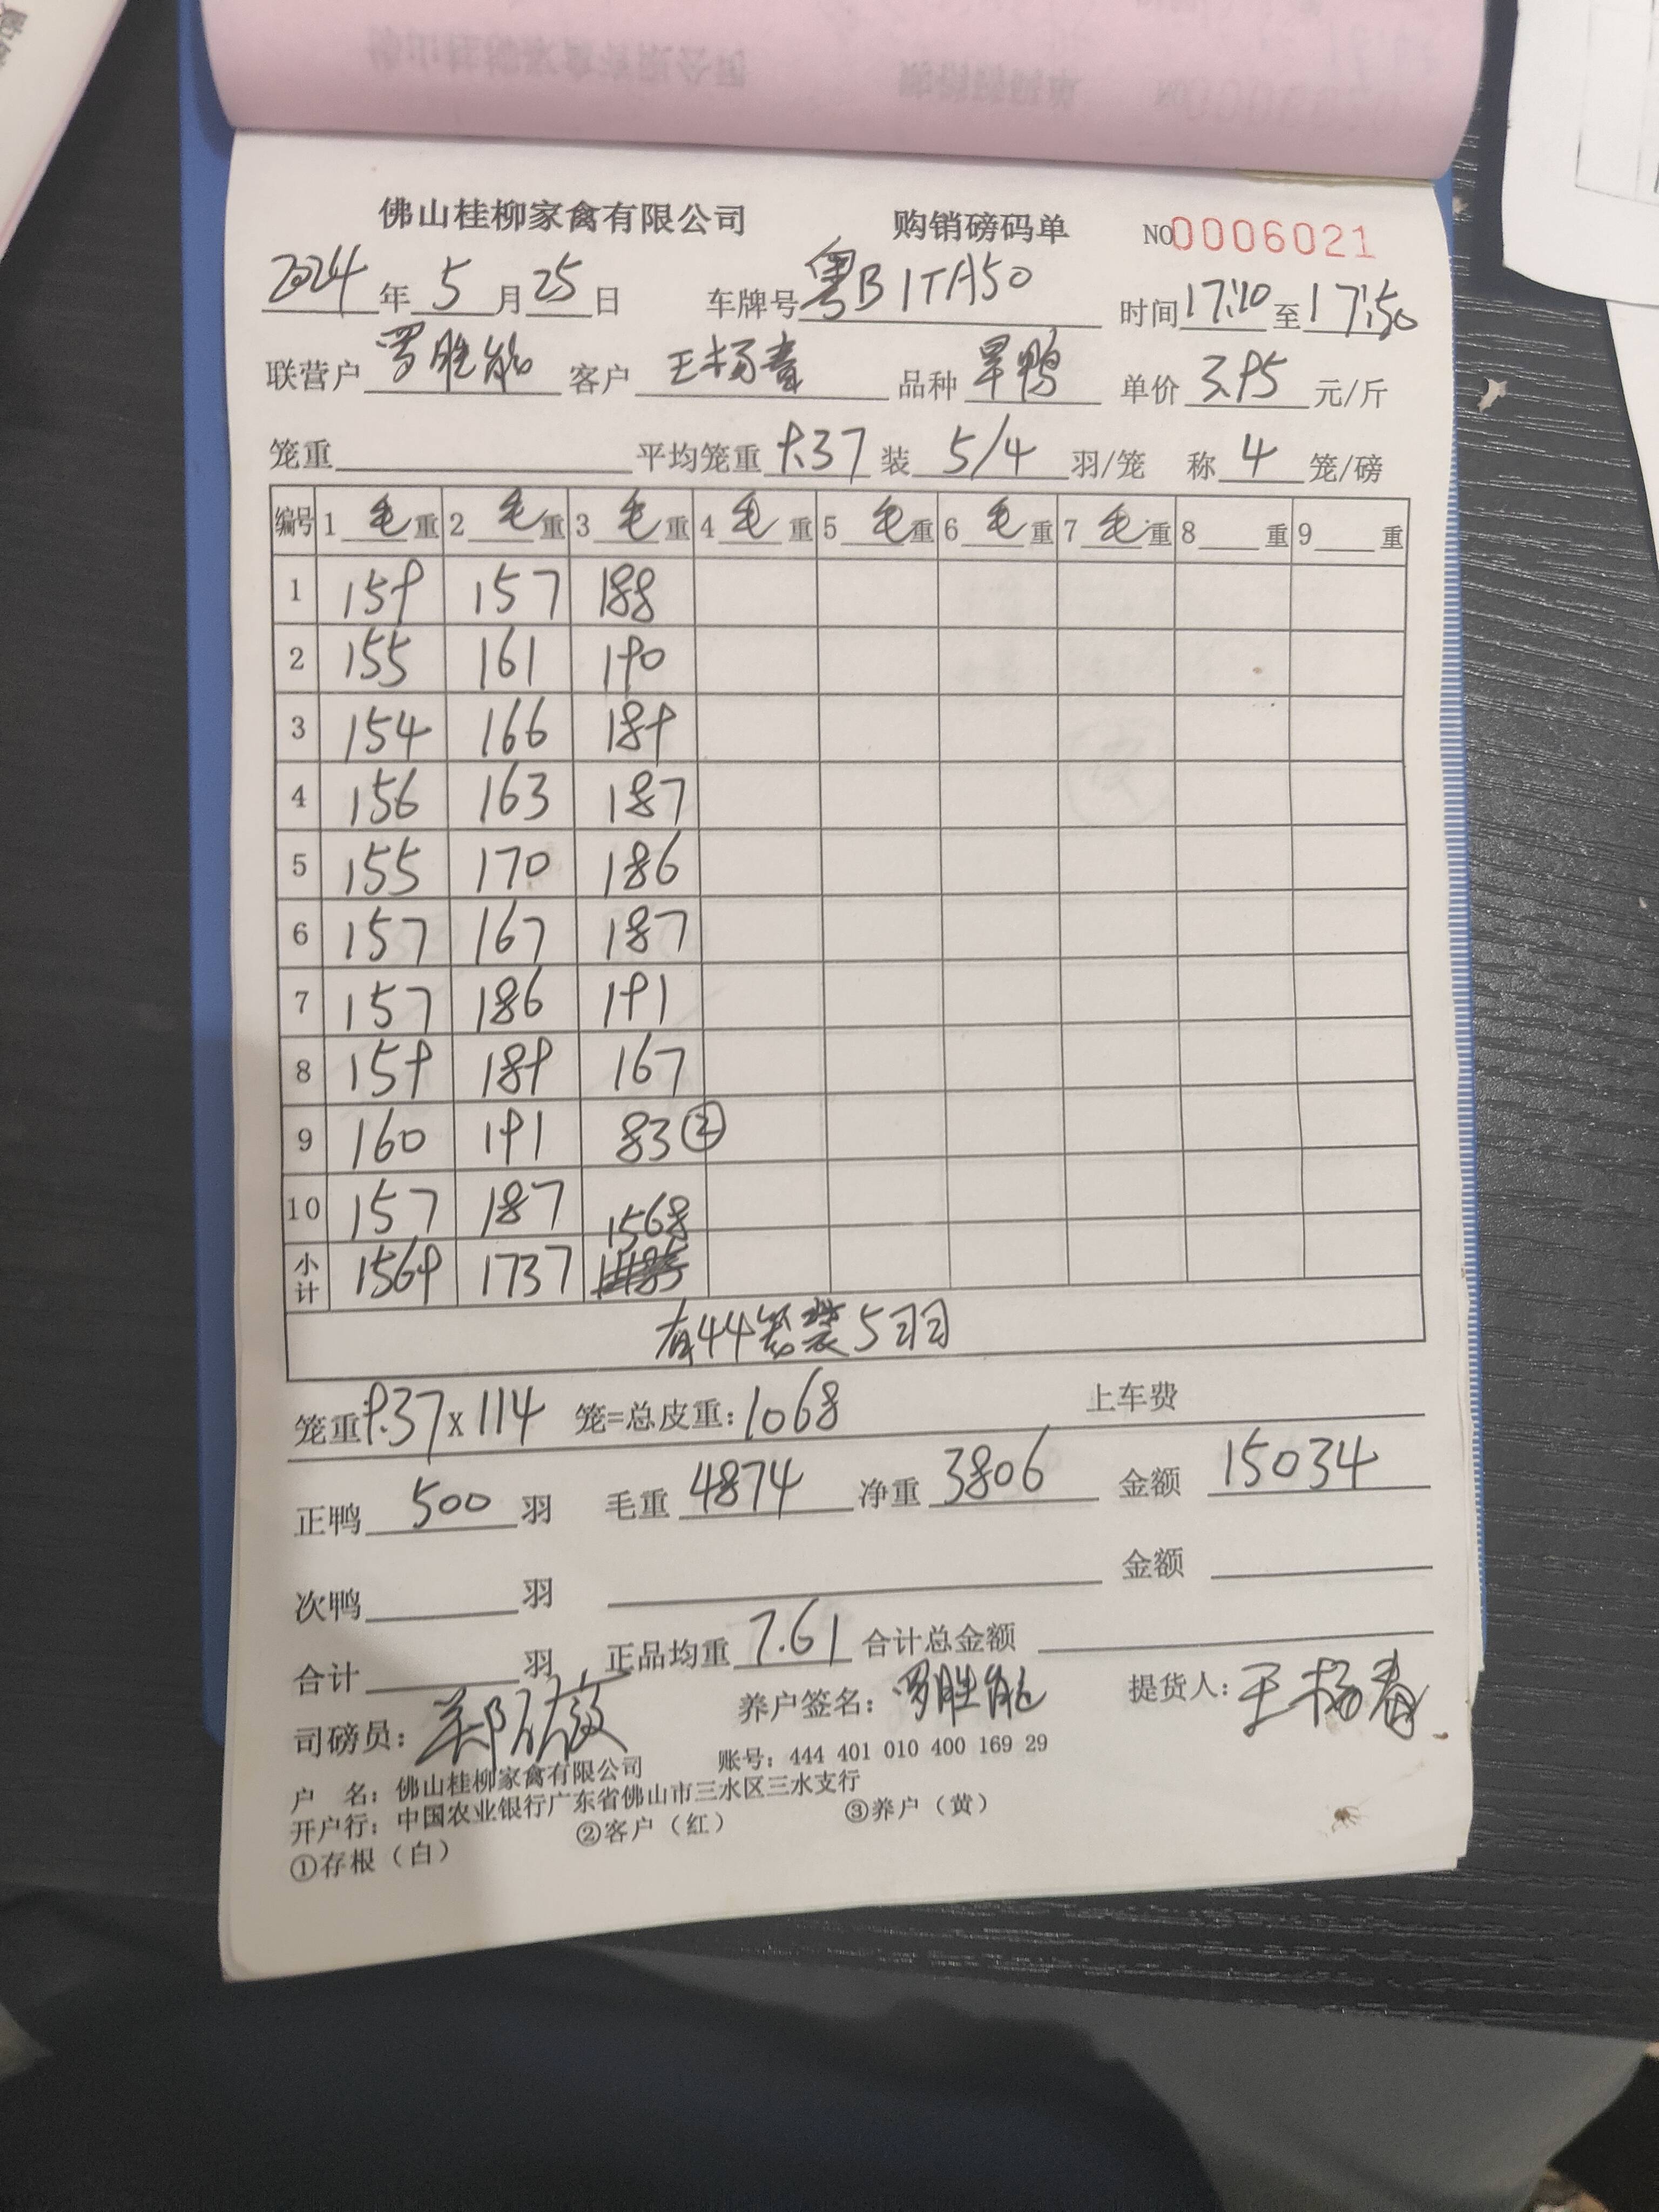 佛山桂柳家禽有限公司 购销磅码单 NO0006021
2024年5月25日 车牌号粤B1TA50 时间17:10至17:50
联营户罗胜能 客户王杨春 品种旱鸭 单价3.95元/斤
笼重 平均笼重9.37装5/4羽/笼 称4笼/磅
编号 1毛重 2毛重 3毛重 4毛重 5毛重 6毛重 7毛重 8重 9重
1 159 157 188
2 155 161 190
3 154 166 189
4 156 163 187
5 155 170 186
6 157 167 187
7 157 186 191
8 159 189 167
9 160 191 83②
10 157 187 1568
小计 1569 1737
有44笼装5羽
笼重9.37x114笼=总皮重:1068 上车费
正鸭500羽 毛重4874净重3806 金额15034
次鸭羽 金额
合计羽 正品均重7.61合计总金额
司磅员: 养户签名:罗胜能 提货人:王杨春
户 名:佛山桂柳家禽有限公司 账号:444 401 010 400 169 29
开户行:中国农业银行广东省佛山市三水区三水支行
①存根（白） ②客户（红） ③养户（黄）